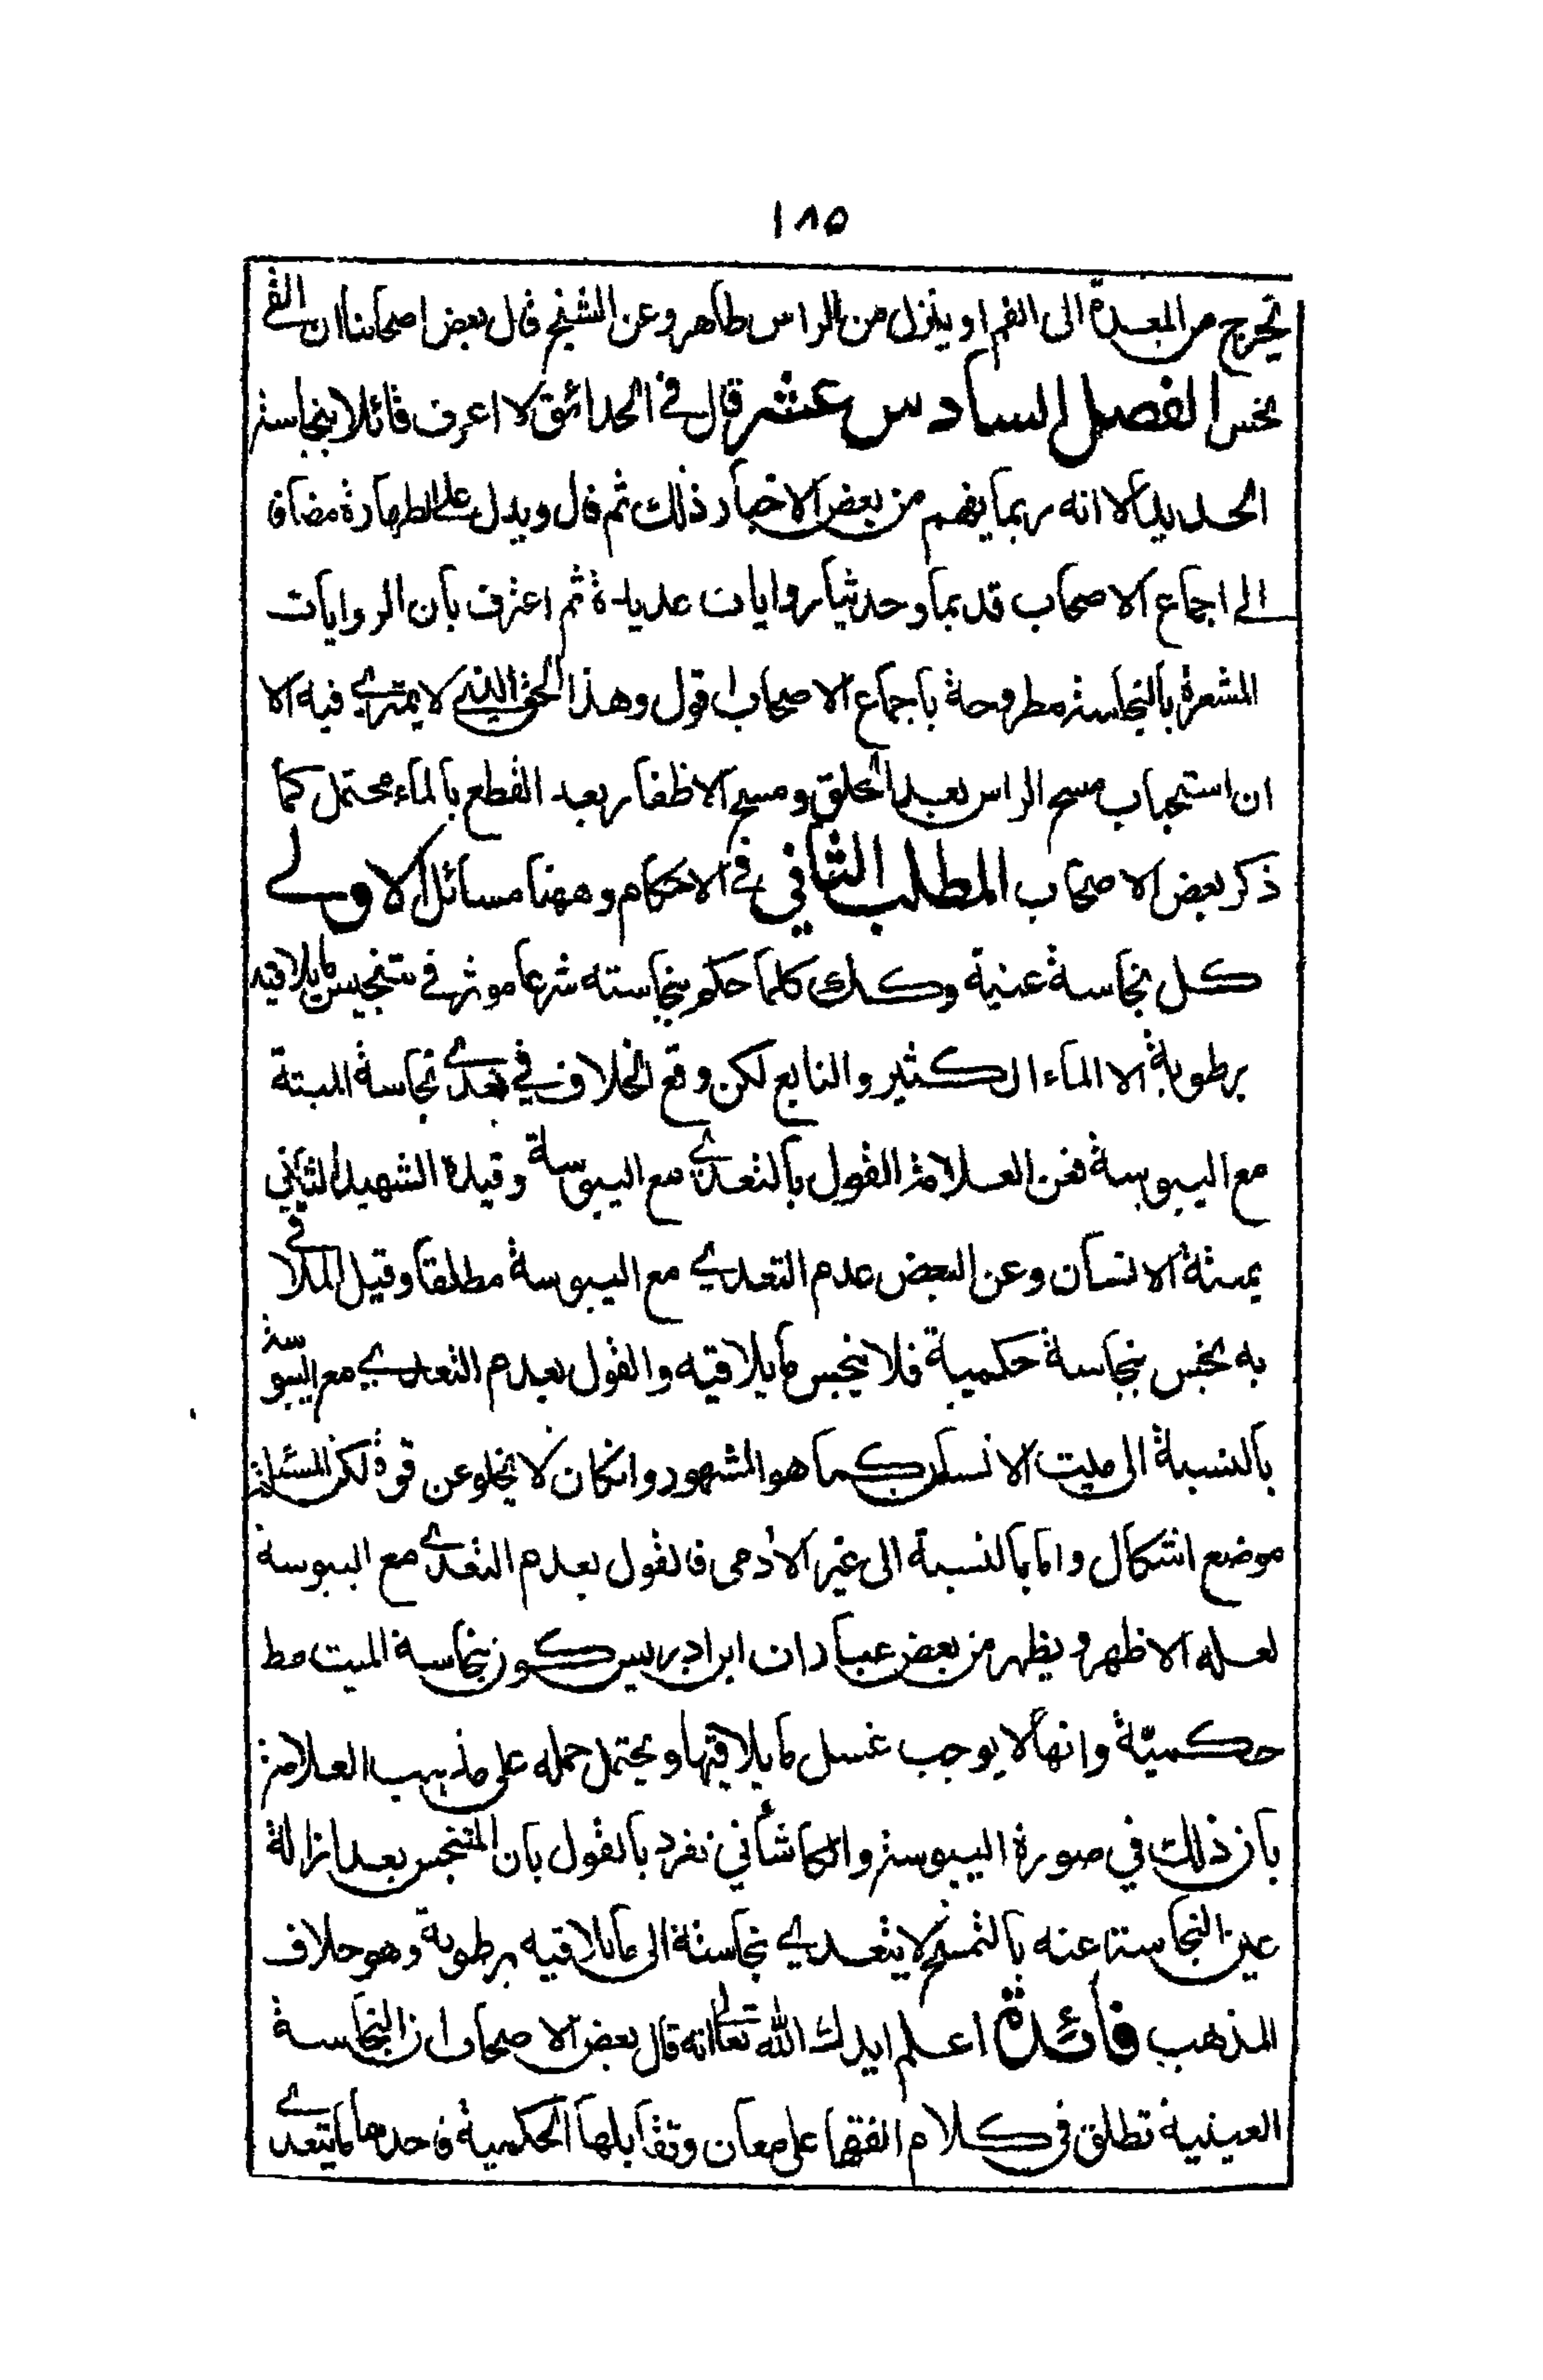 ١٨٥
تخرج من المعدة الى الفم او ينزل من الراس طاهر وعن الشيخ قال بعض اصحابنا ان القى
نجس الفصل السادس عشر قال فى الحدائق لا اعرف قائلا بنجاسة
الحديد الا انه ربما يفهم من بعض الاخبار ذلك ثم قال ويدل على الطهارة مضافا
الى اجماع الاصحاب قديما وحديثا روايات عديدة ثم اعترف بان الروايات
المشعرة بالنجاسة مطروحة باجماع الاصحاب اقول وهذا الحق الذي لا يمترى فيه الا
ان استحباب مسح الراس بعد الحلق ومسح الاظفار بعد القطع بالماء محتمل كما
ذكر بعض الاصحاب المطلب الثاني في الاحكام وههنا مسائل الاولى
كل نجاسة عينية وكك كلما حكم بنجاسته شرعا موثر في تنجيس ما يلاقيه
برطوبة الا الماء الكثير والنابع لكن وقع الخلاف في تعدى نجاسة الميتة
مع اليبوسة فعن العلامة القول بالتعدى مع اليبوسة وقيده الشهيد الثاني
بميتة الانسان وعن البعض عدم التعدي مع اليبوسة مطلقا وقيل الملاقى
به نجس نجاسة حكمية فلا ينجس ما يلاقيه والقول بعدم التعدي مع اليبوسة
بالنسبة الى ميت الانسان كما هو المشهور وان كان لا يخلو عن قوة لكن المسئلة
موضع اشكال واما بالنسبة الى غير الآدمى فالقول بعدم التعدى مع اليبوسة
لعله الاظهر ويظهر من بعض عبارات ابن ادريس كون نجاسة الميت مط
حكميّة وانها لا يوجب غسل ما يلاقيها ويحتمل حمله على مذهب العلامة
بان ذلك في صورة اليبوسة والكاشاني تفرد بالقول بان المتنجس بعد ازالة
عين النجاسة عنه بالتمسح لا يتعدي نجاسته الى ما يلاقيه برطوبة وهو خلاف
المذهب فائدة اعلم ايدك الله تعالى انه قال بعض الاصحاب ان النجاسة
العينية تطلق في كلام الفقها على معان وتقابلها الحكمية فاحدها ما يتعدى